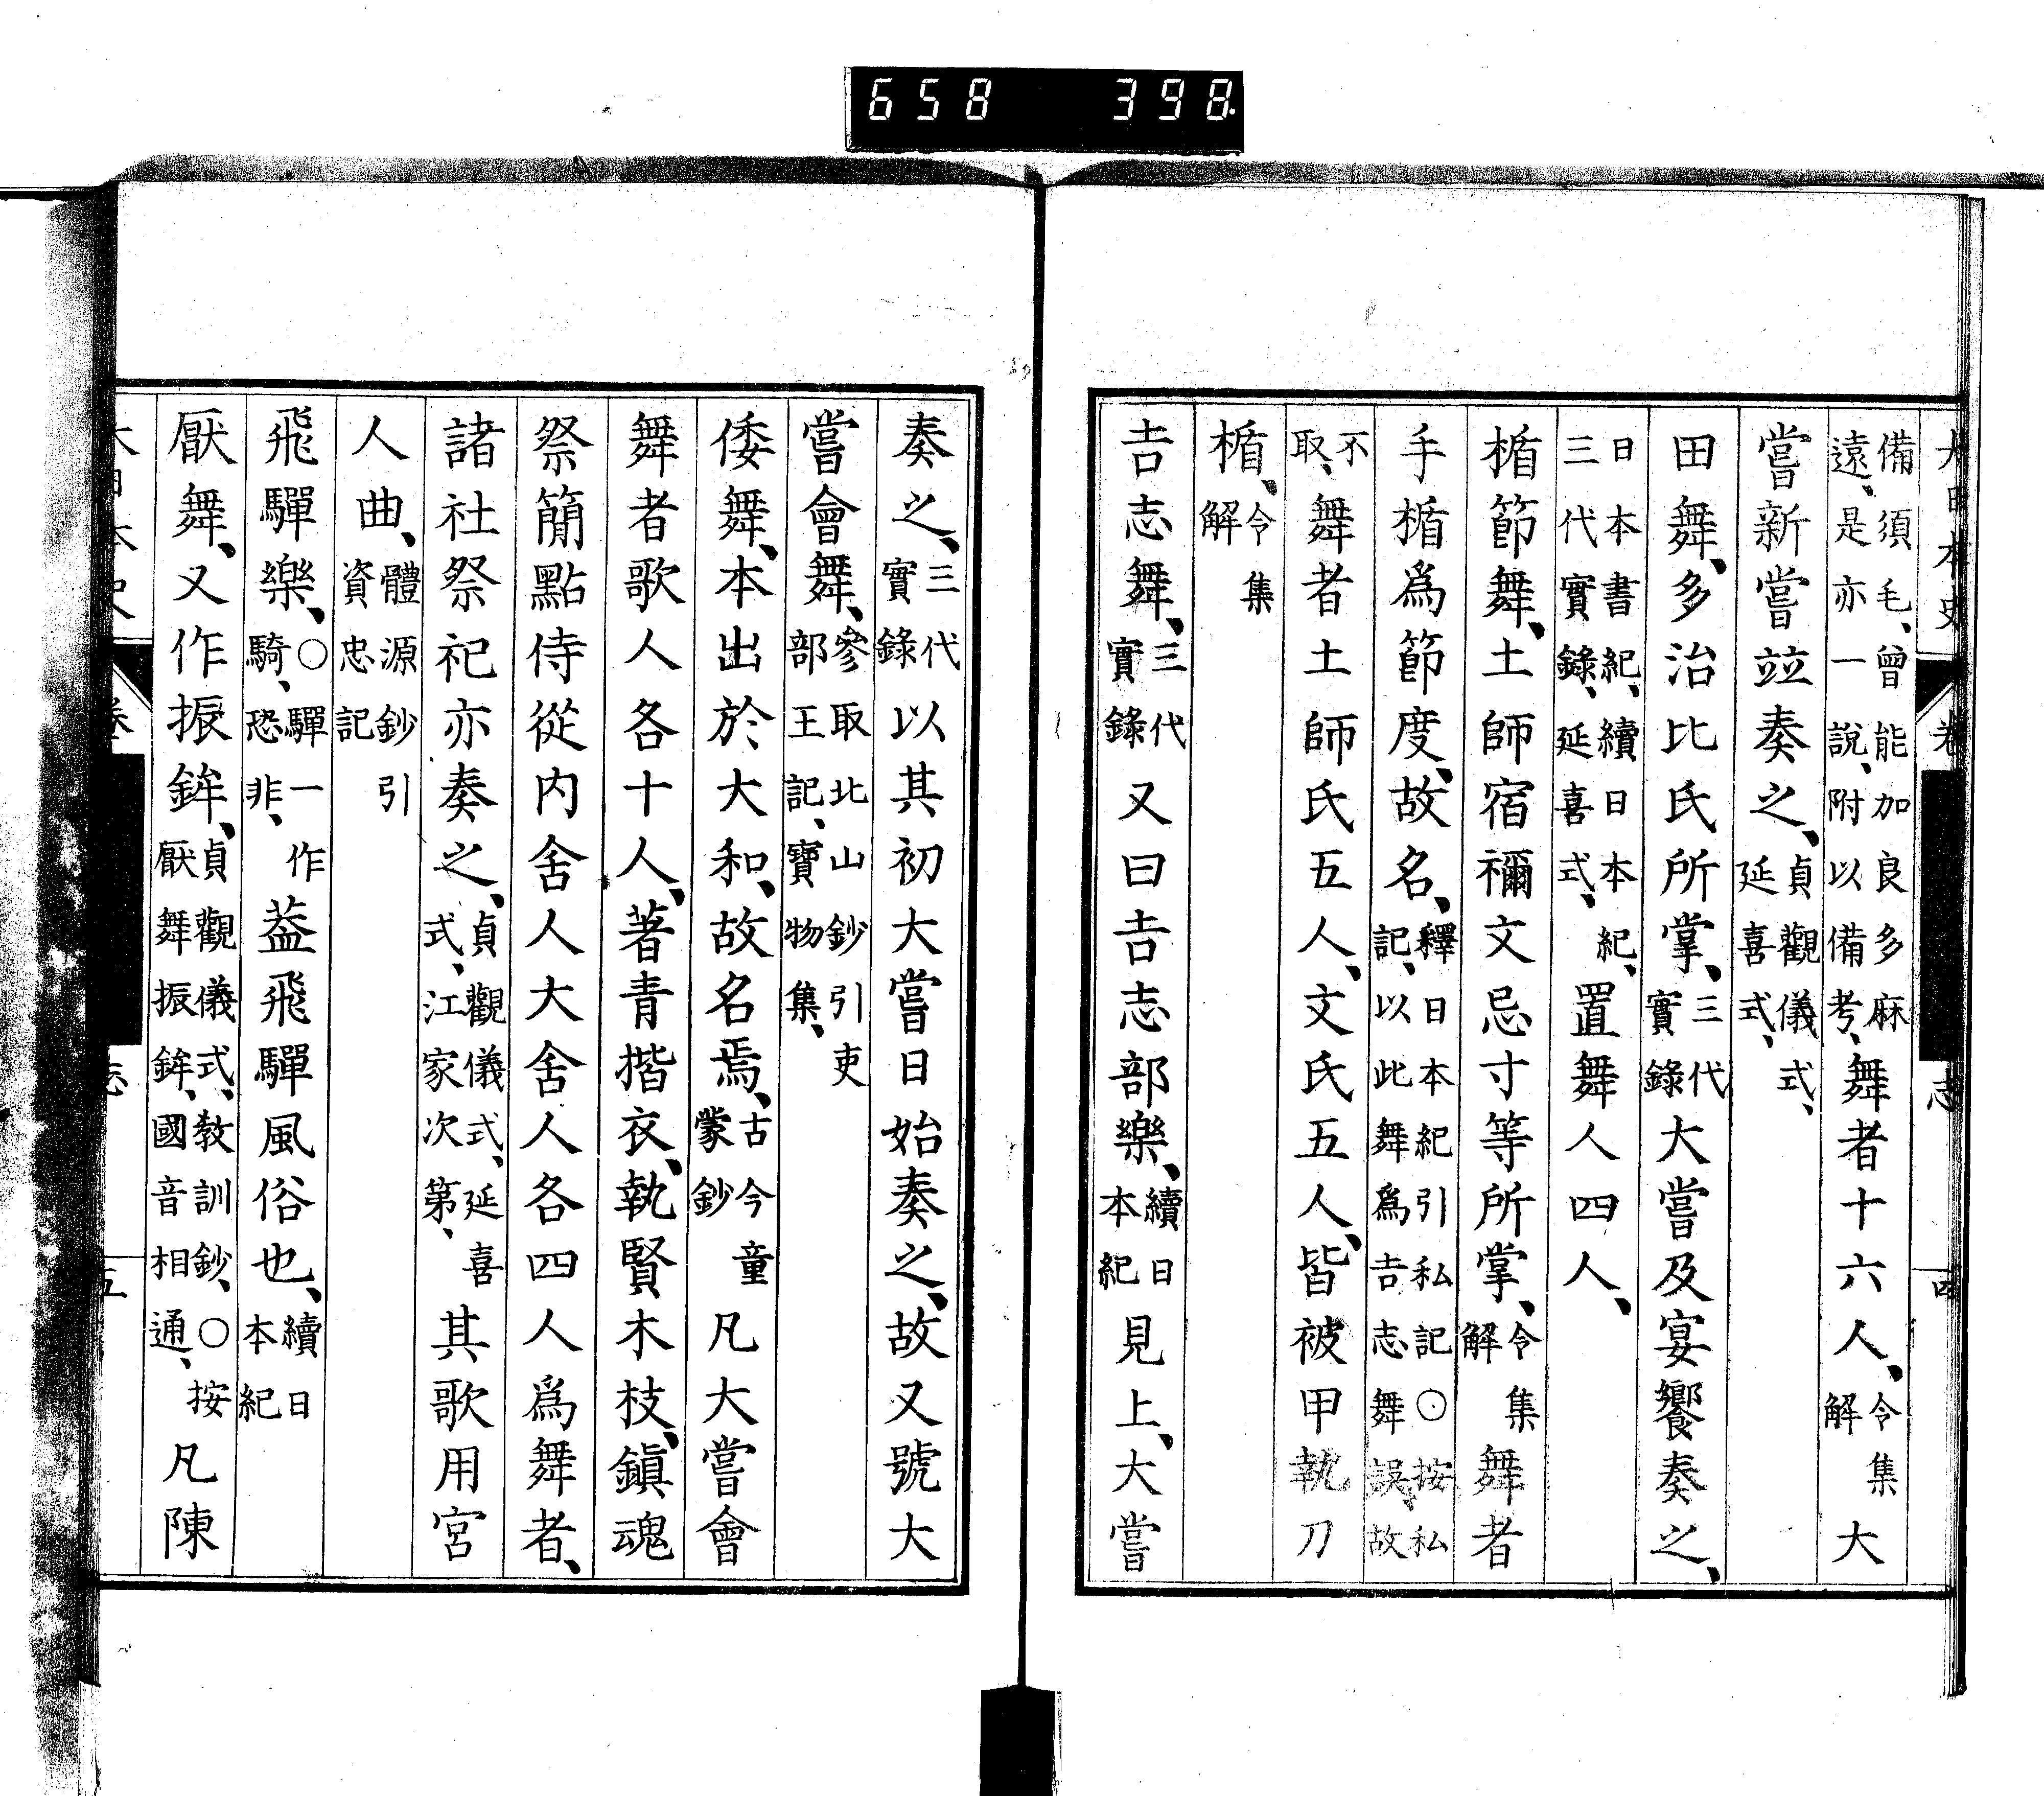 658 398
大日本史 卷 志 四
備須毛、曾能加良多麻
遠、是亦一說、附以備考、舞者十六人、令集解大
嘗新嘗竝奏之、貞觀儀式、延喜式、
田舞、多治比氏所掌、三代實錄大嘗及宴饗奏之、
日本書紀、續日本紀、三代實錄、延喜式、置舞人四人、
楯節舞、土師宿禰文忌寸等所掌、令集解舞者
手楯爲節度、故名、釋日本紀引私記○按私記、以此舞爲吉志舞誤、故
不取、舞者土師氏五人、文氏五人、皆被甲執刀
楯、令集解
吉志舞、三代實錄又曰吉志部樂、續日本紀見上、大嘗
奏之、三代實錄以其初大嘗日始奏之、故又號大
嘗會舞、參取北山鈔引吏部王記、寶物集、
倭舞、本出於大和、故名焉、古今童蒙鈔凡大嘗會
舞者歌人各十人、著青揩衣、執賢木枝、鎭魂
祭簡點侍從内舍人大舍人各四人爲舞者、
諸社祭祀亦奏之、貞觀儀式、延喜式、江家次第、其歌用宮
人曲、體源鈔引資忠記
飛驒樂、○驒一作騎、恐非、葢飛驒風俗也、續日本紀
厭舞、又作振鉾、貞觀儀式、教訓鈔、○按厭舞振鉾、國音相通、凡陳
大日本史 卷 志 五